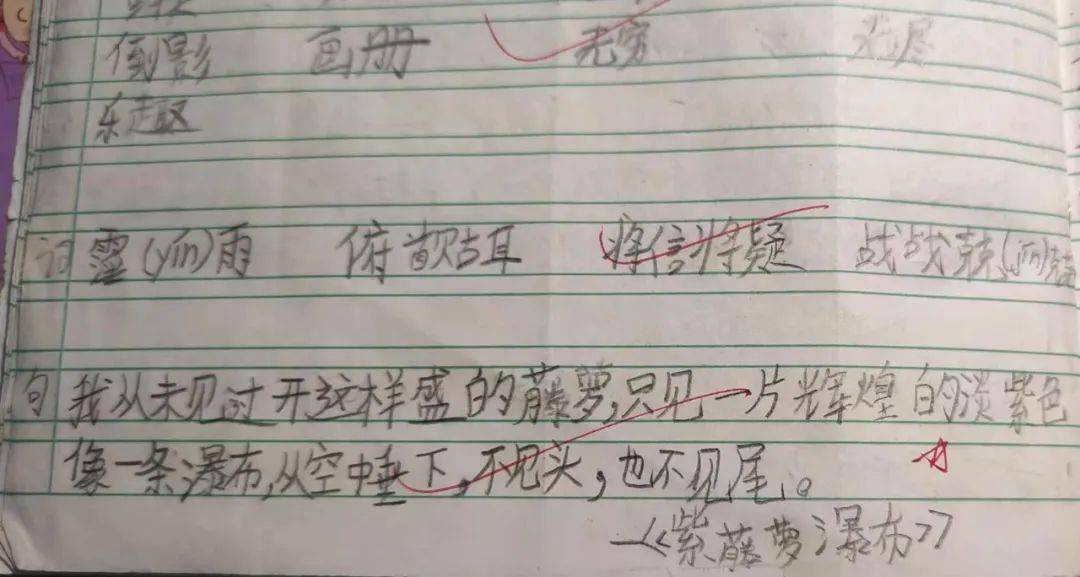 倒影 画册 无穷 无尽
乐趣
词 霪(yín)雨 俯首帖耳 将信将疑 战战兢(jīn)兢
句 我从未见过开这样盛的藤萝,只见一片辉煌的淡紫色
像一条瀑布,从空中垂下,不见头,也不见尾。
—《紫藤萝瀑布》